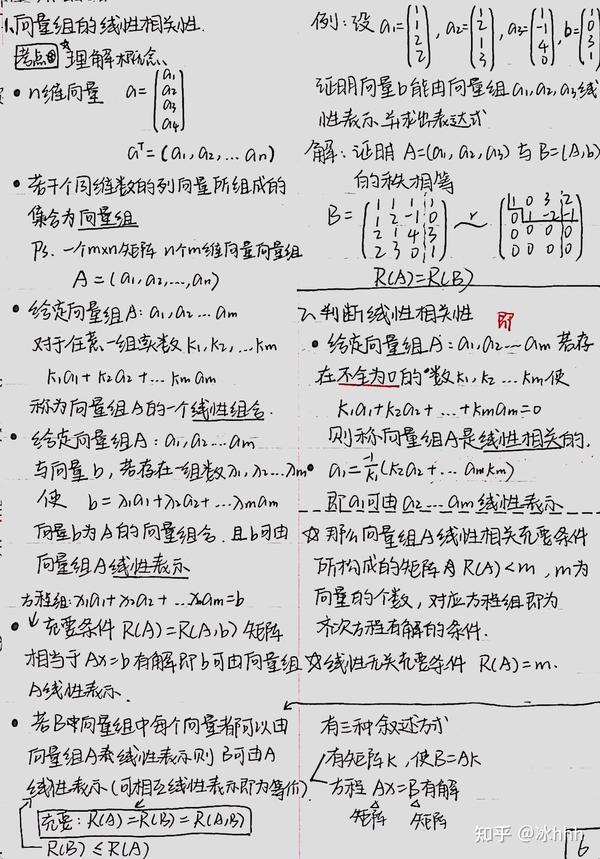 1.向量组的线性相关性.
考点① 理解概念.
• n维向量 a=(a₁ a₂ a₃ a₄)
aᵀ=(a₁,a₂,…an)
• 若干个同维数的列向量所组成的
集合为向量组
Ps. 一个m×n矩阵 n个m维向量向量组
A=(a₁,a₂,…,an)
• 给定向量组A:a₁,a₂…am
对于任意一组实数k₁,k₂,…km
k₁a₁+k₂a₂+…kmam
称为向量组A的一个线性组合.
• 给定向量组A:a₁,a₂…am
与向量b,若存在一组数λ₁,λ₂…λm
使 b=λ₁a₁+λ₂a₂+…λmam
向量b为A的向量组合.且b可由
向量组A线性表示
方程组:x₁a₁+x₂a₂+…xmam=b
• 充要条件 R(A)=R(A,b) 矩阵
相当于Ax=b有解即b可由向量组
A线性表示.
• 若B中向量组中每个向量都可以由
向量组A线性表示则B可由A
线性表示(可相互线性表示即为等价)
充要:R(A)=R(B)=R(A,B)
R(B)≤R(A)
例:设a₁=(1 1 2 2),a₂=(1 2 1 3),a₃=(1 -1 4 0),b=(1 0 3 1)
证明向量b能由向量组a₁,a₂,a₃线
性表示并求出表达式
解:证明 A=(a₁,a₂,a₃)与B=(A,b)
的秩相等
B=(1 1 1 1
1 2 -1 0
2 1 4 3
2 3 0 1) ~r (1 0 3 2
0 1 -2 -1
0 0 0 0
0 0 0 0)
R(A)=R(B)
2.判断线性相关性 即
• 给定向量组A:a₁,a₂…am若存
在不全为0的数k₁,k₂…km使
k₁a₁+k₂a₂+…+kmam=0
则称向量组A是线性相关的.
• a₁=-1/k₁(k₂a₂+…amkm)
即a₁可由a₂…am线性表示
☆那么向量组A线性相关充要条件
所构成的矩阵 R(A)<m,m为
向量的个数,对应方程组即为
齐次方程有解的条件.
☆线性无关充要条件 R(A)=m.
有三种叙述方式
有矩阵K,使B=AK
方程 AX=B有解
矩阵 矩阵
知乎 @冰hhh
16